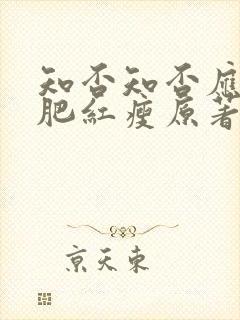 知否知否應
肥紅瘦原著
京天東